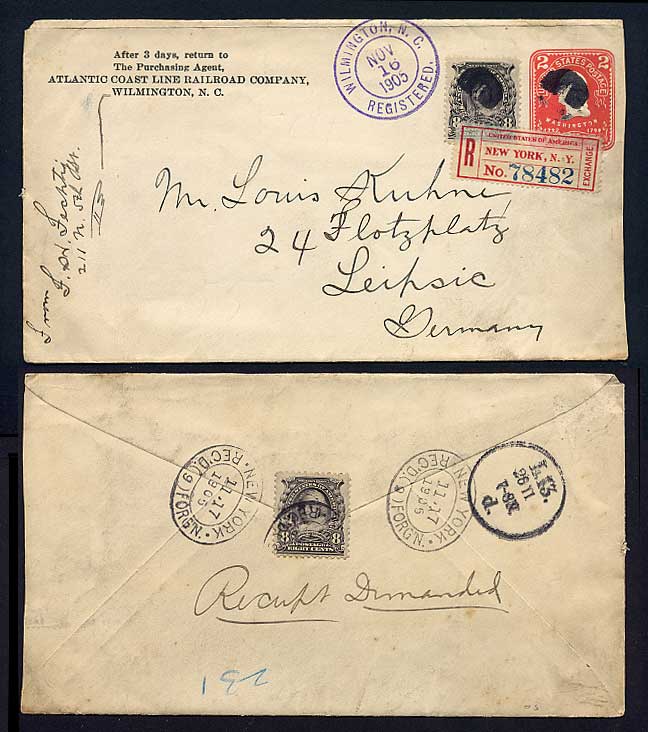 After 3 days, return to
The Purchasing Agent,
ATLANTIC COAST LINE RAILROAD COMPANY,
WILMINGTON, N. C.
WILMINGTON, N. C.
NOV
16
1905
REGISTERED.
8
2 UNITED STATES POSTAGE 2
WASHINGTON
1732 1799
UNITED STATES OF AMERICA
R
NEW YORK, N. Y.
No. 78482
EXCHANGE
From
211 N. 5th
Mr. Louis Kuhne
24 Flotzplatz
Leipsic
Germany
NEW YORK
11-17
1905
REC'D. (9) FORGN.
8 POSTAGE 8
EIGHT CENTS
NEW YORK
11-17
1905
REC'D. (9) FORGN.
L.13.
26 11
7-8N.
d.
Receipt Demanded
231